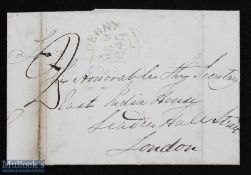 DEENX
2
The Honorable The Secretary
East India House
Leaden Hall Street
London
Mullock's